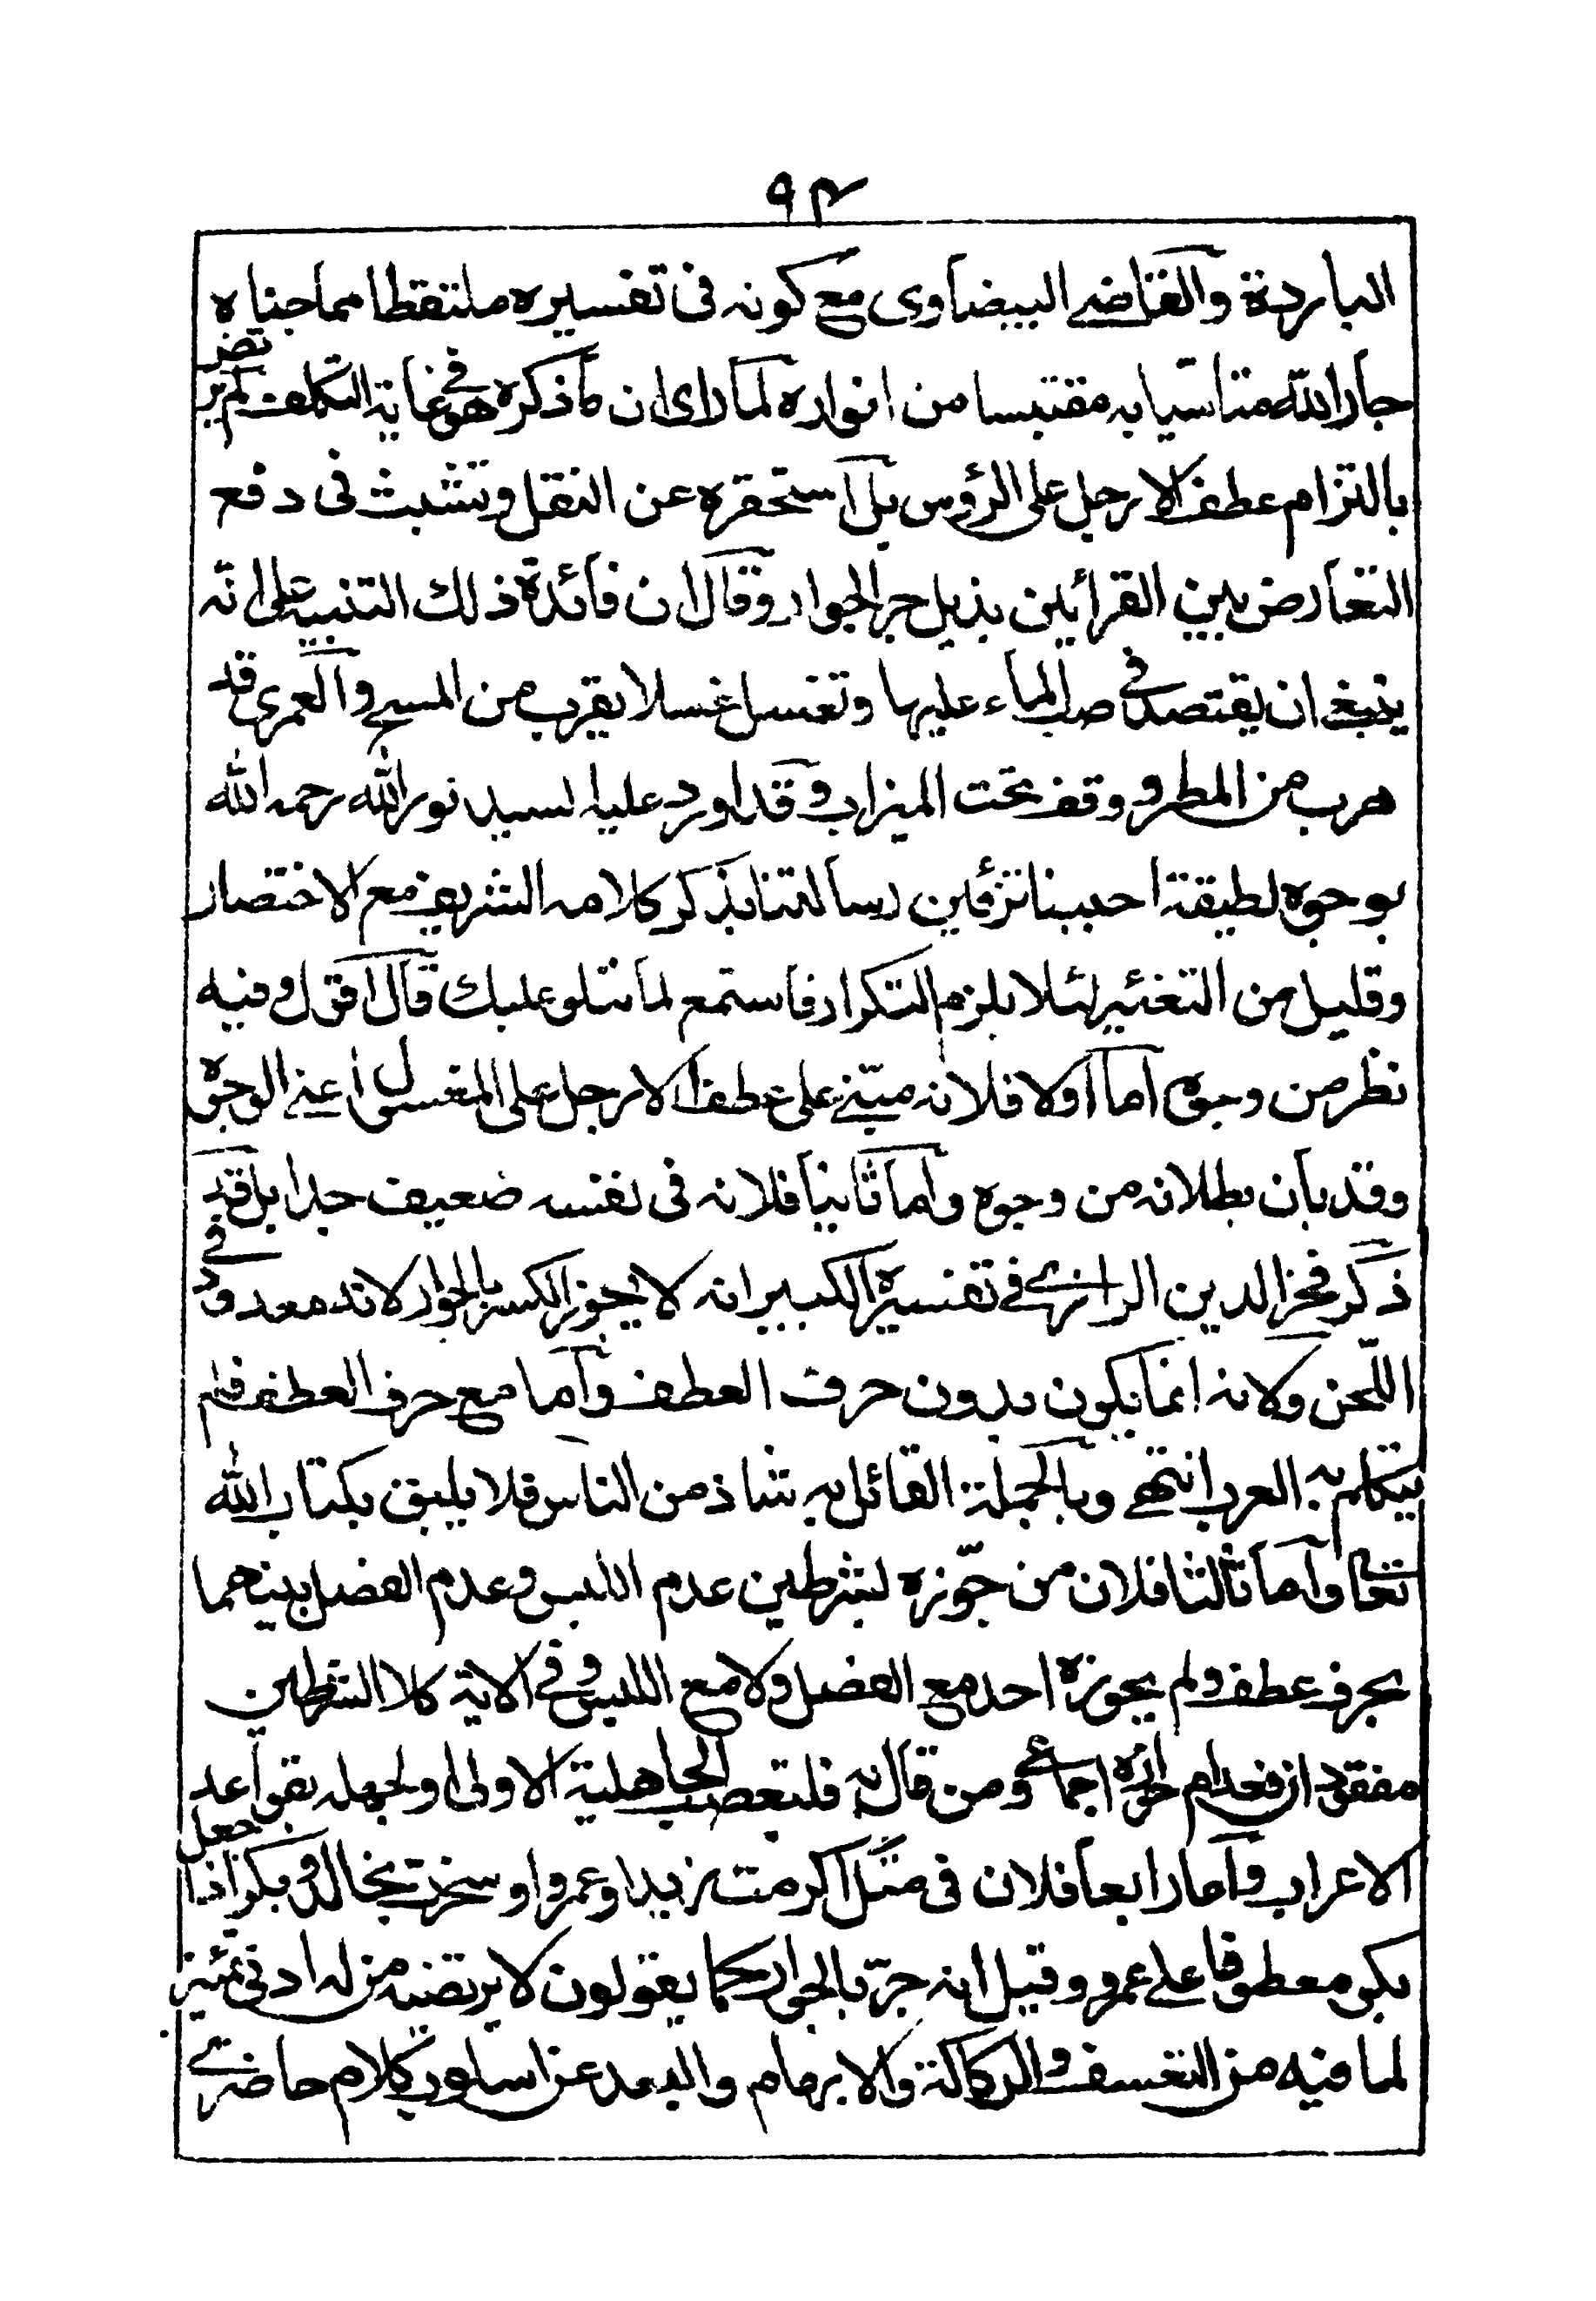 ٩٣
الباردة والقاضي البيضاوى مع كونه فى تفسيره ملتقطا مما جناه
جار الله متاسيا به مقتبسا من انواره لما راى ان ما ذكره هو فى غاية التكلف لم يرتض
بالتزام عطف الارجل على الرؤس بل استحقره عن النقل وتشبث فى دفع
التعارض بين القرائين بذيل جر الجوار وقال ان فائدة ذلك التنبيه على انّه
ينبغي ان يقتصد فى صب الماء عليها وتغسل غسلا يقرب من المسح و لعمرى قد
هرب من المطر و وقف تحت الميزاب وقد اورد عليه السيد نور الله رحمه الله
بوجوه لطيفة احببنا تزئين رسالتنا بذكر كلامه الشريف مع الاختصار
وقليل من التغئير لئلا يلزم التكرار فاستمع لما نتلو عليك قال اقول وفيه
نظر من وجوه اما اولا فلانه مبنّي على عطف الارجل على المغسول اعني الوجوه
وقد بان بطلانه من وجوه واما ثانيا فلانه فى نفسه ضعيف جدا بل قد
ذكر فخر الدين الرازي في تفسيره الكبير انه لا يجوز الكسر بالجوار لانه معدود في
اللّحن ولانه انما يكون بدون حرف العطف واما مع حرف العطف فلم
يتكلم به العرب انتهى وبالجملة القائل به شاذ من الناس فلا يليق بكتاب الله
تعالى واما ثالثا فلان من جوّزه بشرطين عدم اللبس وعدم الفصل بينهما
بحرف عطف ولم يجوزه احد مع الفصل ولا مع اللبس وفي الاية كلا الشرطين
مفقود ان فعدم جوازه اجماعي ومن قال به فلتعصب الجاهلية الاولى او لجهله بقواعد
الاعراب واما رابعا فلان فى مثل اكرمت زيدا وعمروا وسخرت بخالد وبكر اذا جعل
بكر معطوفا على عمرو وقيل انه جرّ بالجوار كما يقولون لا يرتضيه من له ادنى تمئيز
لما فيه من التعسف والركاكة والابهام والبعد عن اسلوب كلام حاضري